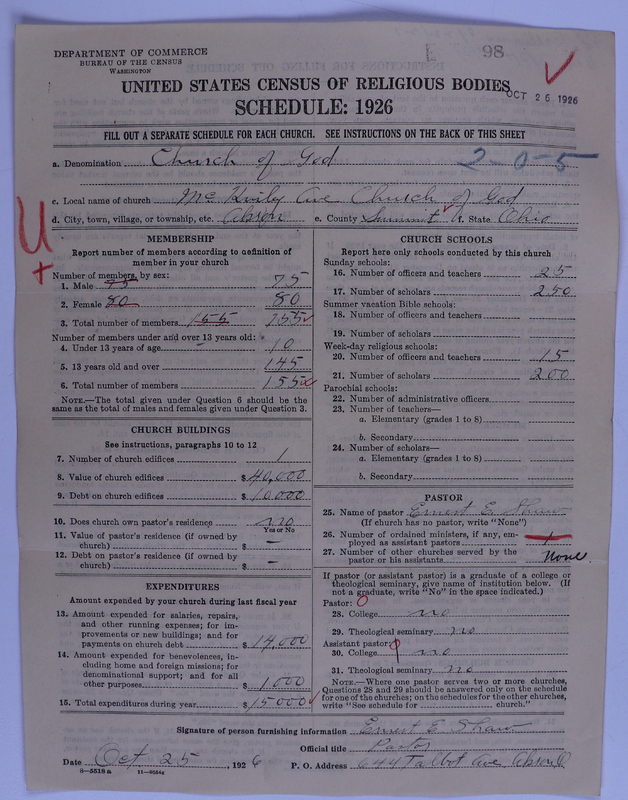 DEPARTMENT OF COMMERCE
BUREAU OF THE CENSUS
WASHINGTON
E 98
UNITED STATES CENSUS OF RELIGIOUS BODIES
OCT 26 1926
SCHEDULE: 1926
FILL OUT A SEPARATE SCHEDULE FOR EACH CHURCH. SEE INSTRUCTIONS ON THE BACK OF THIS SHEET
a. Denomination Church of God 2-0-5
c. Local name of church Church of God
d. City, town, village, or township, etc. Akron e. County Summit f. State Ohio
U
+
MEMBERSHIP
Report number of members according to definition of
member in your church
Number of members, by sex:
1. Male 75 75
2. Female 80 80
3. Total number of members 155 155
Number of members under and over 13 years old:
4. Under 13 years of age 10
5. 13 years old and over 145
6. Total number of members 155
NOTE.—The total given under Question 6 should be
same as the total of males and females given under Question 3.
CHURCH BUILDINGS
See instructions, paragraphs 10 to 12
7. Number of church edifices 1
8. Value of church edifices $ 40,000
9. Debt on church edifices $ 10,000
10. Does church own pastor's residence no
Yes or No
11. Value of pastor's residence (if owned by
church) $ —
12. Debt on pastor's residence (if owned by
church) $ —
EXPENDITURES
Amount expended by your church during last fiscal year
13. Amount expended for salaries, repairs,
and other running expenses; for im-
provements or new buildings; and for
payments on church debt $ 14,000
14. Amount expended for benevolences, in-
cluding home and foreign missions; for
denominational support; and for all
other purposes $ 1000
15. Total expenditures during year $ 15000
CHURCH SCHOOLS
Report here only schools conducted by this church
Sunday schools:
16. Number of officers and teachers 25
17. Number of scholars 250
Summer vacation Bible schools:
18. Number of officers and teachers
19. Number of scholars
Week-day religious schools:
20. Number of officers and teachers 15
21. Number of scholars 200
Parochial schools:
22. Number of administrative officers
23. Number of teachers—
a. Elementary (grades 1 to 8)
b. Secondary
24. Number of scholars—
a. Elementary (grades 1 to 8)
b. Secondary
PASTOR
25. Name of pastor Ernest E. Shaw
(If church has no pastor, write "None")
26. Number of ordained ministers, if any, em-
ployed as assistant pastors
27. Number of other churches served by the
pastor or his assistants None
If pastor (or assistant pastor) is a graduate of a college or
theological seminary, give name of institution below. (If
not a graduate, write "No" in the space indicated.)
Pastor:
28. College no
29. Theological seminary no
Assistant pastor:
30. College no
31. Theological seminary no
NOTE.—Where one pastor serves two or more churches,
Questions 28 and 29 should be answered only on the schedule
for one of the churches; on the schedules for the other churches,
write "See schedule for church."
Signature of person furnishing information Ernest E Shaw
Official title Pastor
Date Oct 25, 1926 P. O. Address 644 Talbot Ave Akron O
8—5518 a 11—9054a